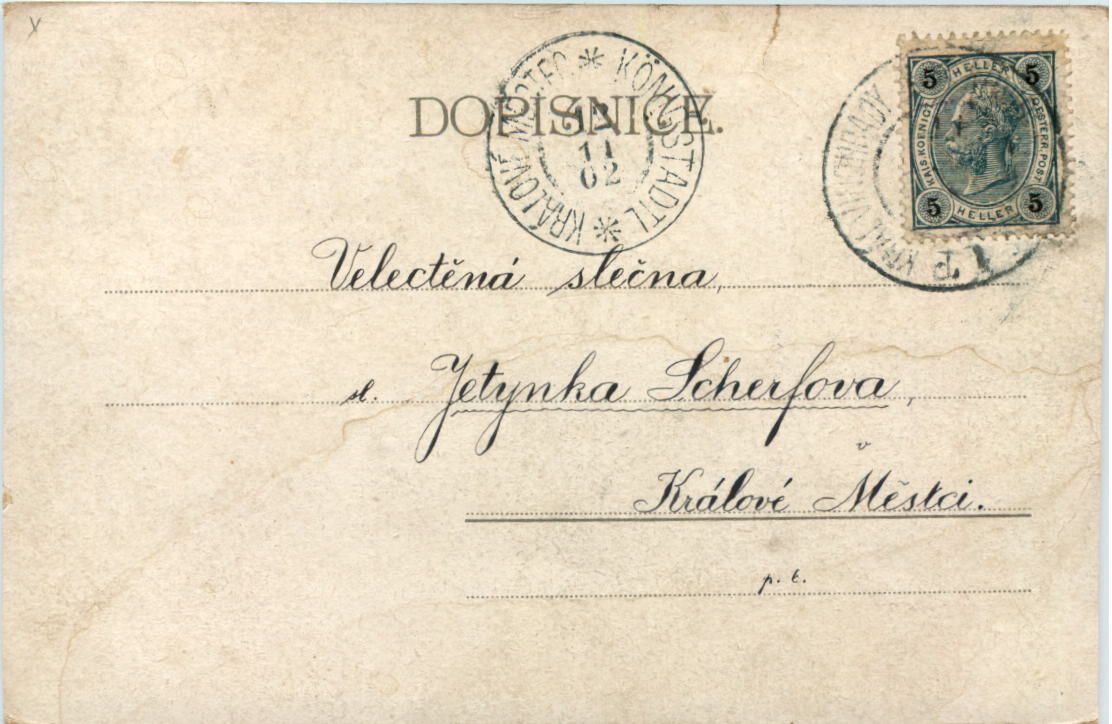 DOPISNICE.
KRÁLOVÉ MĚSTEC * KÖNIGSTADTL *
11
02
5 HELLER 5
KAIS. KOENIGL. OESTERR. POST.
5 HELLER 5
Velectěná slečna,
sl. Jetynka Scherfova,
v
Králové Městci.
p. t.